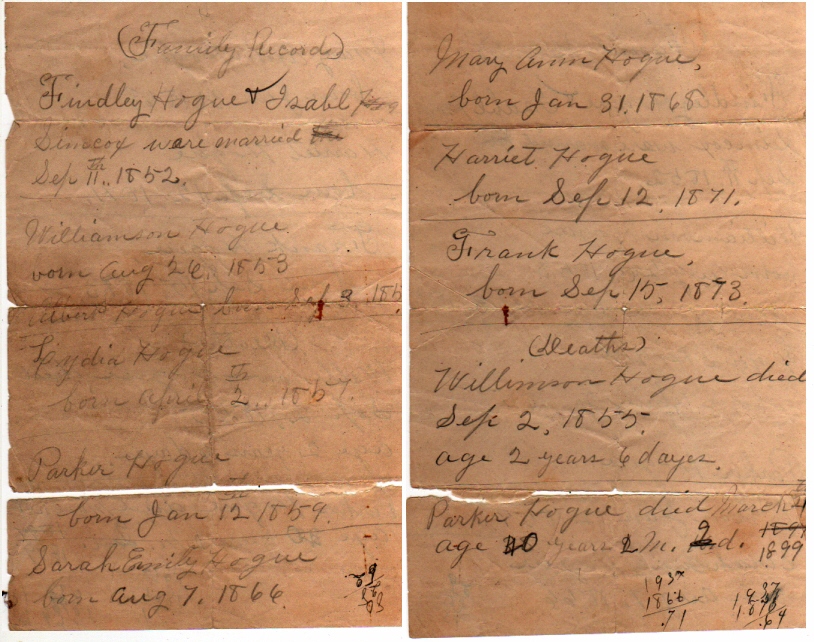 (Family Record)
Findley Hogue & Isabl
Simcox were married
Sep 11th, 1852.
Williamson Hogue.
born Aug 26, 1853
Albert Hogue born Sep 3, 185
Lydia Hogue
born April 2th, 1857.
Parker Hogue
born Jan 12th 1859.
Sarah Emily Hogue
born Aug 7, 1866.
Mary Ann Hogue,
born Jan 31, 1868
Harriet Hogue
born Sep 12, 1871.
Frank Hogue,
born Sep 15, 1873.
(Deaths)
Willimson Hogue died
Sep 2, 1855.
age 2 years 6 dayes.
Parker Hogue died March 4
age 40 years 2 M. 9 d. 1899
1937
1866
.71
1937
.69